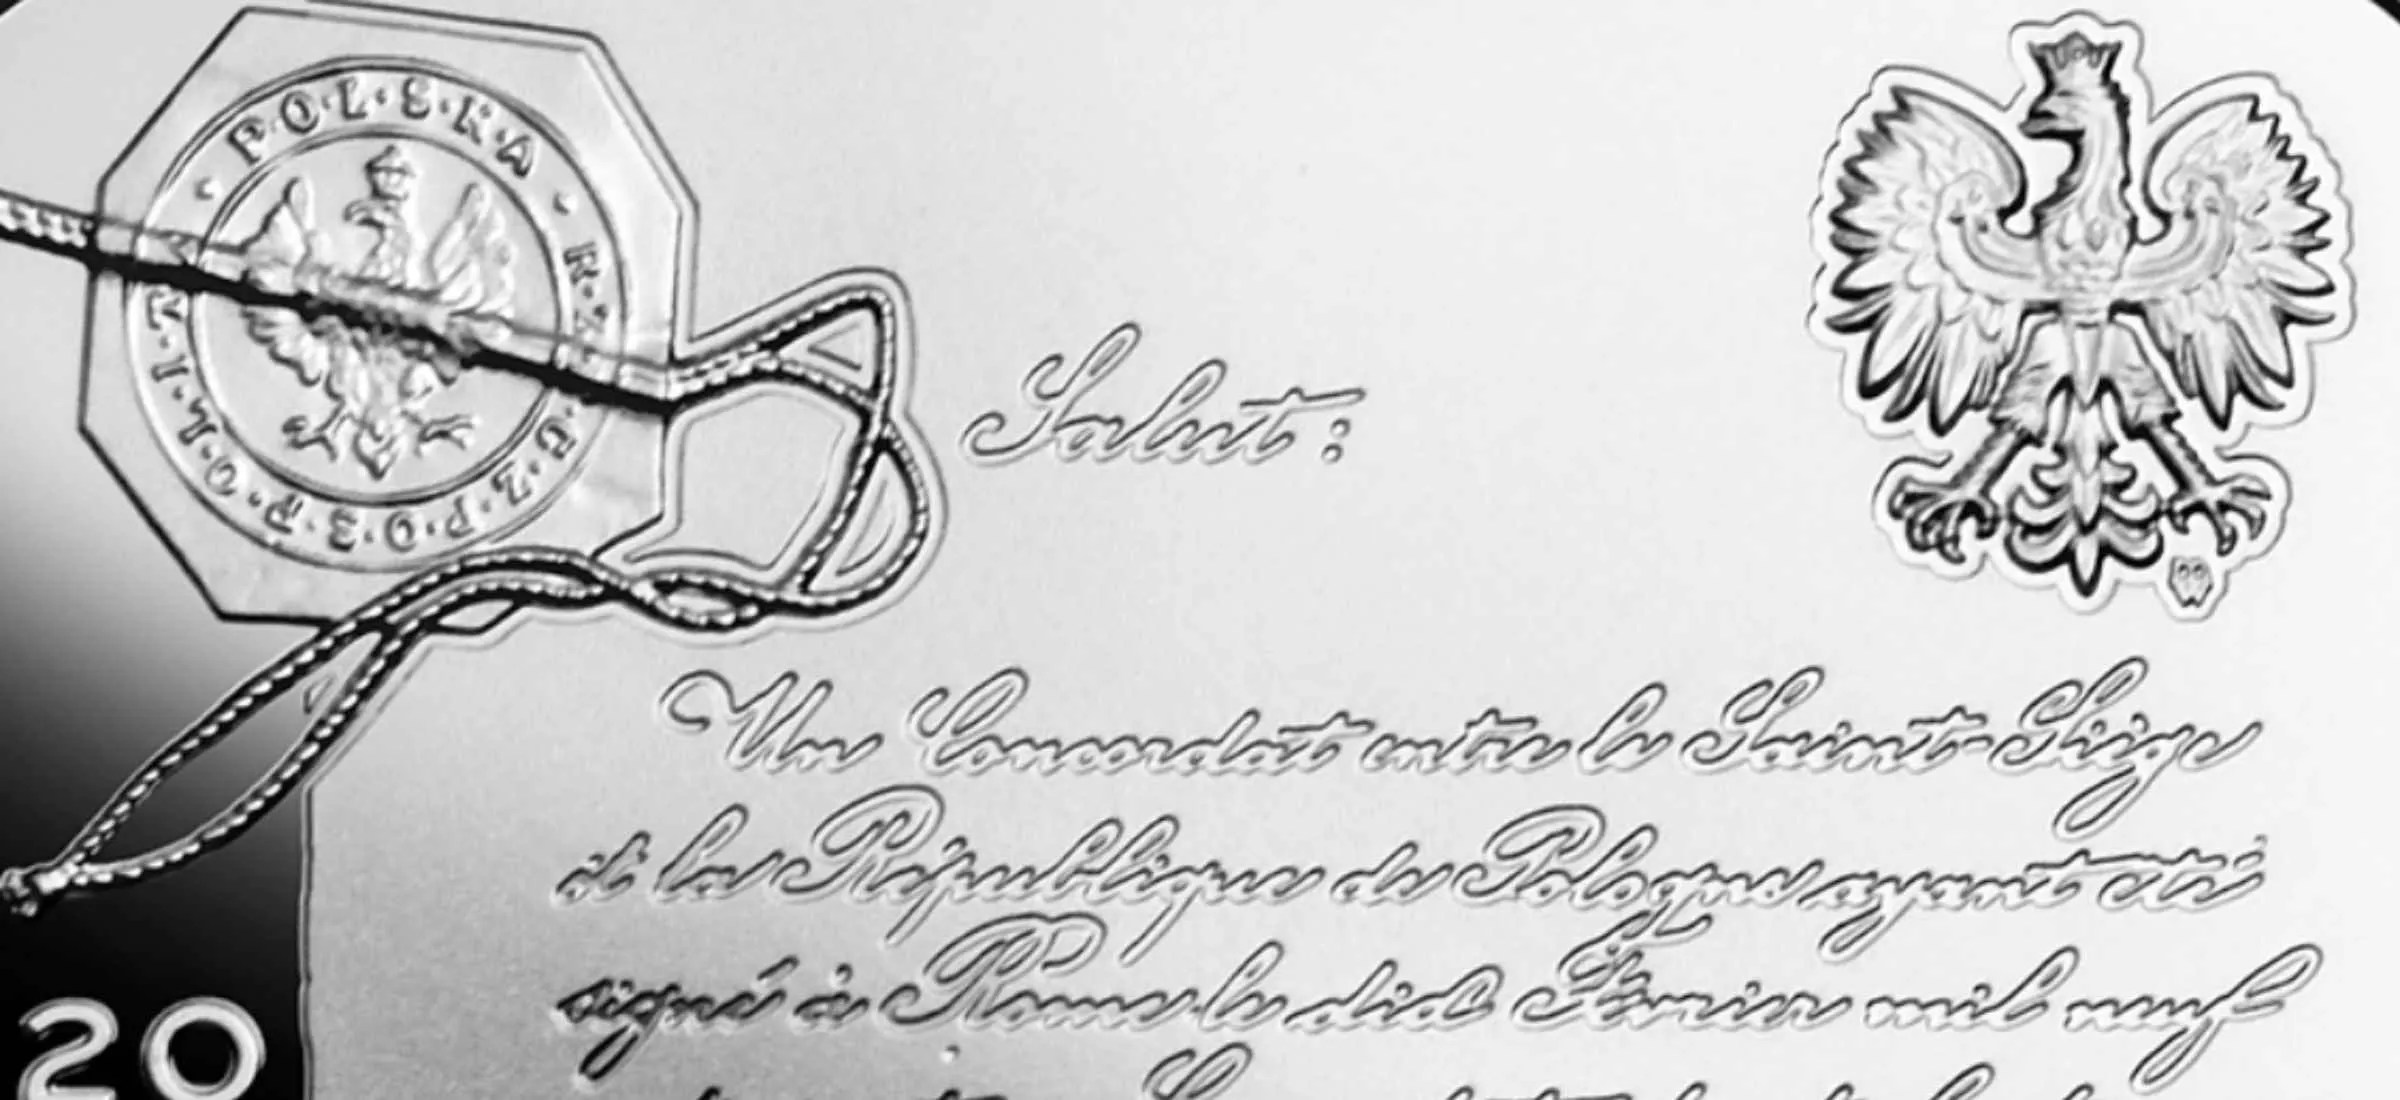 · POLSKA · RZECZPOSPOLITA
Salut :
Un Concordat entre le Saint-Siège
et la République de Pologne ayant été
signé à Rome le dix Février mil neuf
20